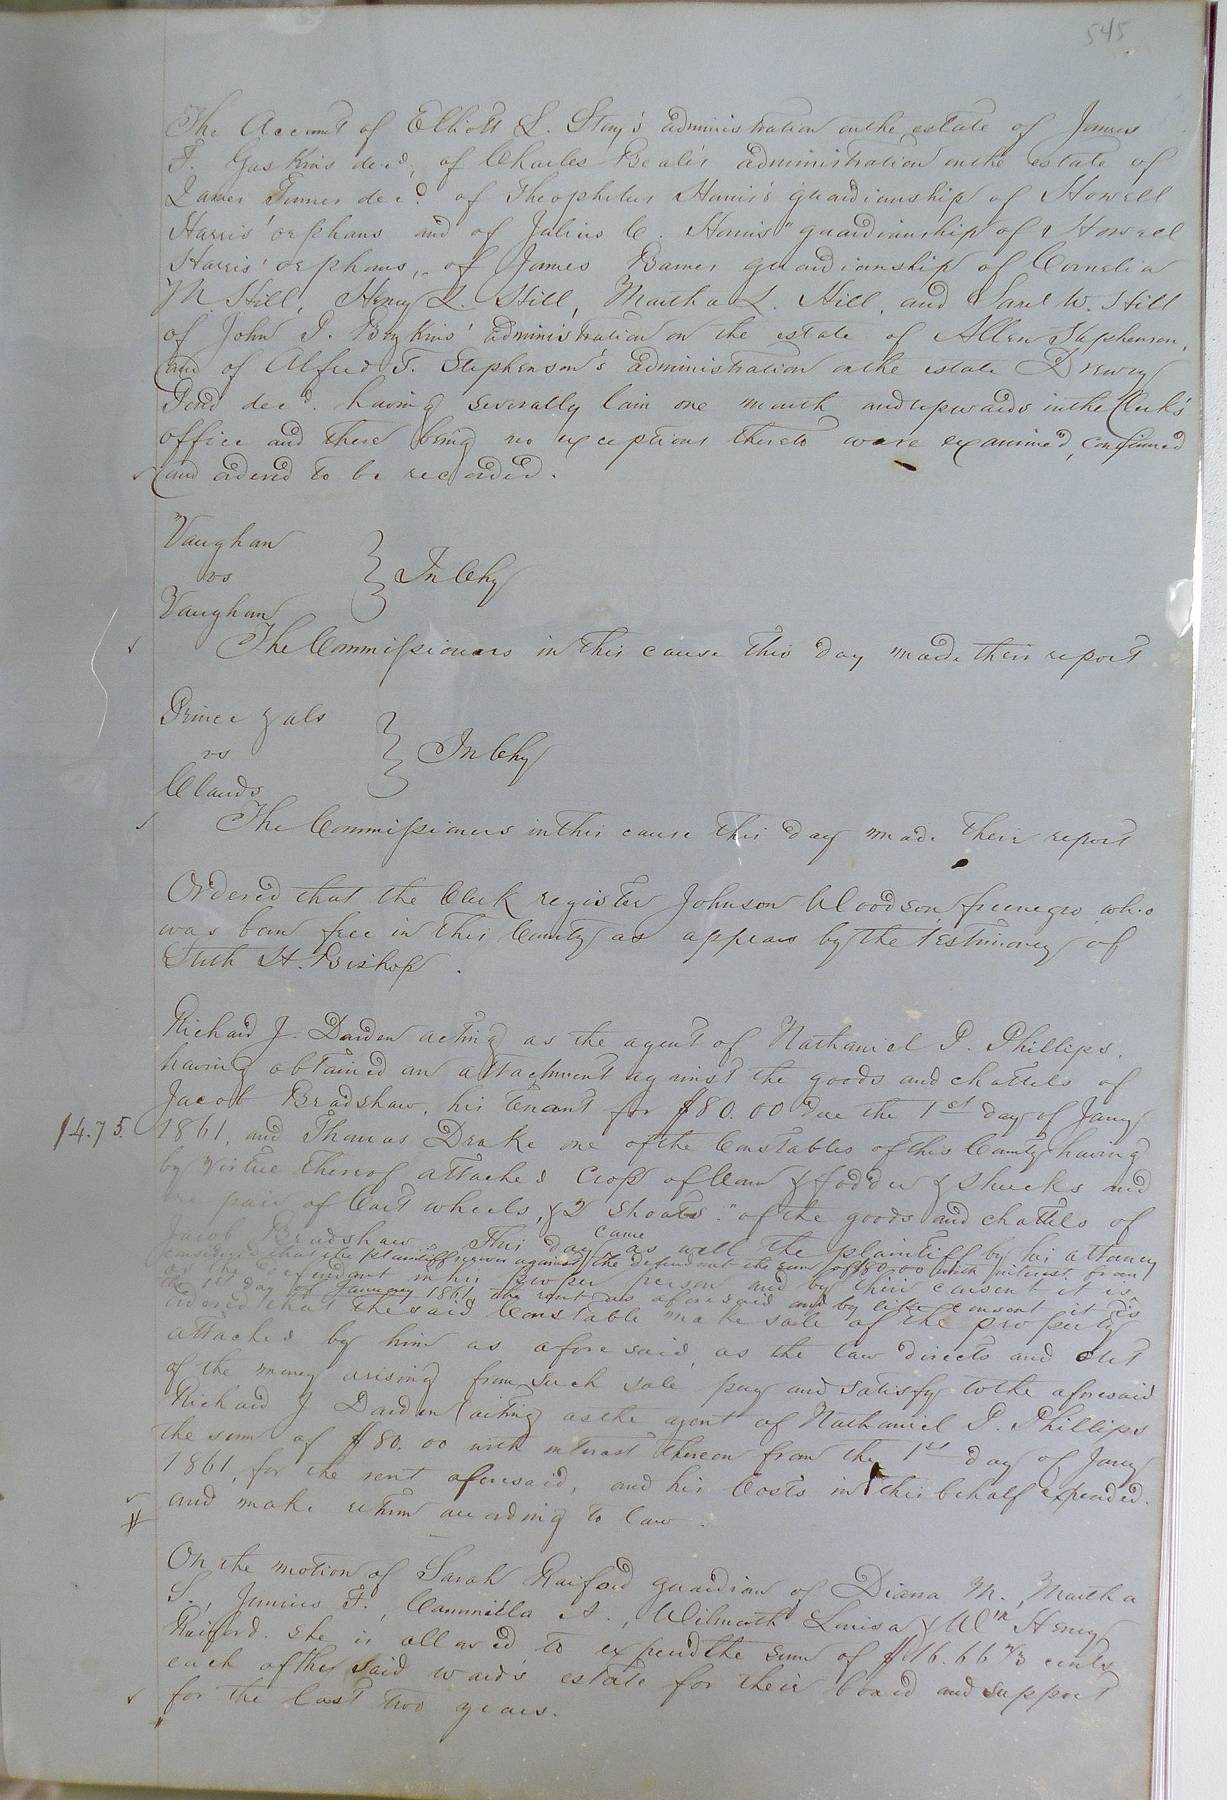 545
The Account of Elliott L. Story's administration on the estate of James
F. Gaskins dec'd, of Charles Beale's administration on the estate of
James Turner dec'd. of Theophilus Harris's guardianship of Howell
Harris' orphans and of Julius C. Harris' guardianship of Howell
Harris' orphans, of James Barnes guardianship of Cornelia
M. Hill, Henry L. Hill, Martha L. Hill, and Saml W. Hill
of John J. Boykins' administration on the estate of Allen Stephenson,
and of Alfred F. Stephenson's administration on the estate Drewry
Pond dec'd. having severally lain one month and upwards in the Clerk's
office and there being no exceptions thereto were examined, confirmed
and ordered to be recorded.
Vaughan
vs
Vaughan
} In Chy
The Commissioners in this cause this day made their report
Prince & als
vs
Clauds
} In Chy
The Commissioners in this cause this day made their report
Ordered that the Clerk register Johnson Woodson, free negro who
was born free in this County as appears by the testimony of
Stith H. Bishop.
Richard J. Darden acting as the agent of Nathaniel P. Phillips,
having obtained an attachment against the goods and chattels of
Jacob Bradshaw, his tenant for $80.00 due the 1st day of Jany
14.75. 1861, and Thomas Drake one of the Constables of this County having
by virtue thereof attached crop of Corn & fodder & shucks and
one pair of Cart wheels, & 2 Shoats." of the goods and chattels of
Jacob Bradshaw. This day came as well the plaintiff by his attorney
as the defendant in his proper person and by their consent it is
considered that the plaintiff recover against the defendant the sum of $80.00 with interest from
the 1st day of January 1861, the rent as aforesaid and by like consent it is
ordered that the said Constable make sale of the property
attached by him as aforesaid, as the law directs and out
of the money arising from such sale pay and satisfy to the aforesaid
Richard J Darden acting as the agent of Nathaniel P. Phillips
the sum of $80.00 with interest thereon from the 1st day of Jany
1861, for the rent aforesaid, and his Costs in this behalf expended.
and make return according to law.
On the motion of Sarah Raiford guardian of Diana M., Martha
S., Junius F., Cammilla A., Wilmuth Louisa & Wm Henry
Raiford. she is allowed to expend the sum of $16.66 2/3 cents
each of the said ward's estate for their board and support
for the last two years.